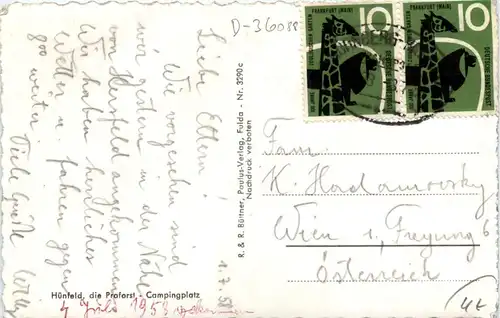 D-36088
Liebe Eltern!
Wie vorgesehen sind
wir gestern in der Nähe
von Hersfeld angekommen
Wir haben herrliches
Wetter u. fahren gegen
8⁰⁰ weiter.
Viele Grüße Willy
1.7.
Hünfeld, die Praforst - Campingplatz
4 Juli 1958
R. & R. Büttner, Paulus-Verlag, Fulda - Nr. 3290c
Nachdruck verboten
100 JAHRE
ZOOLOGISCHER GARTEN
FRANKFURT (MAIN)
10
DEUTSCHE BUNDESPOST
100 JAHRE
ZOOLOGISCHER GARTEN
FRANKFURT (MAIN)
10
DEUTSCHE BUNDESPOST
Fam.
K.
Wien 1. Freyung 6
Österreich